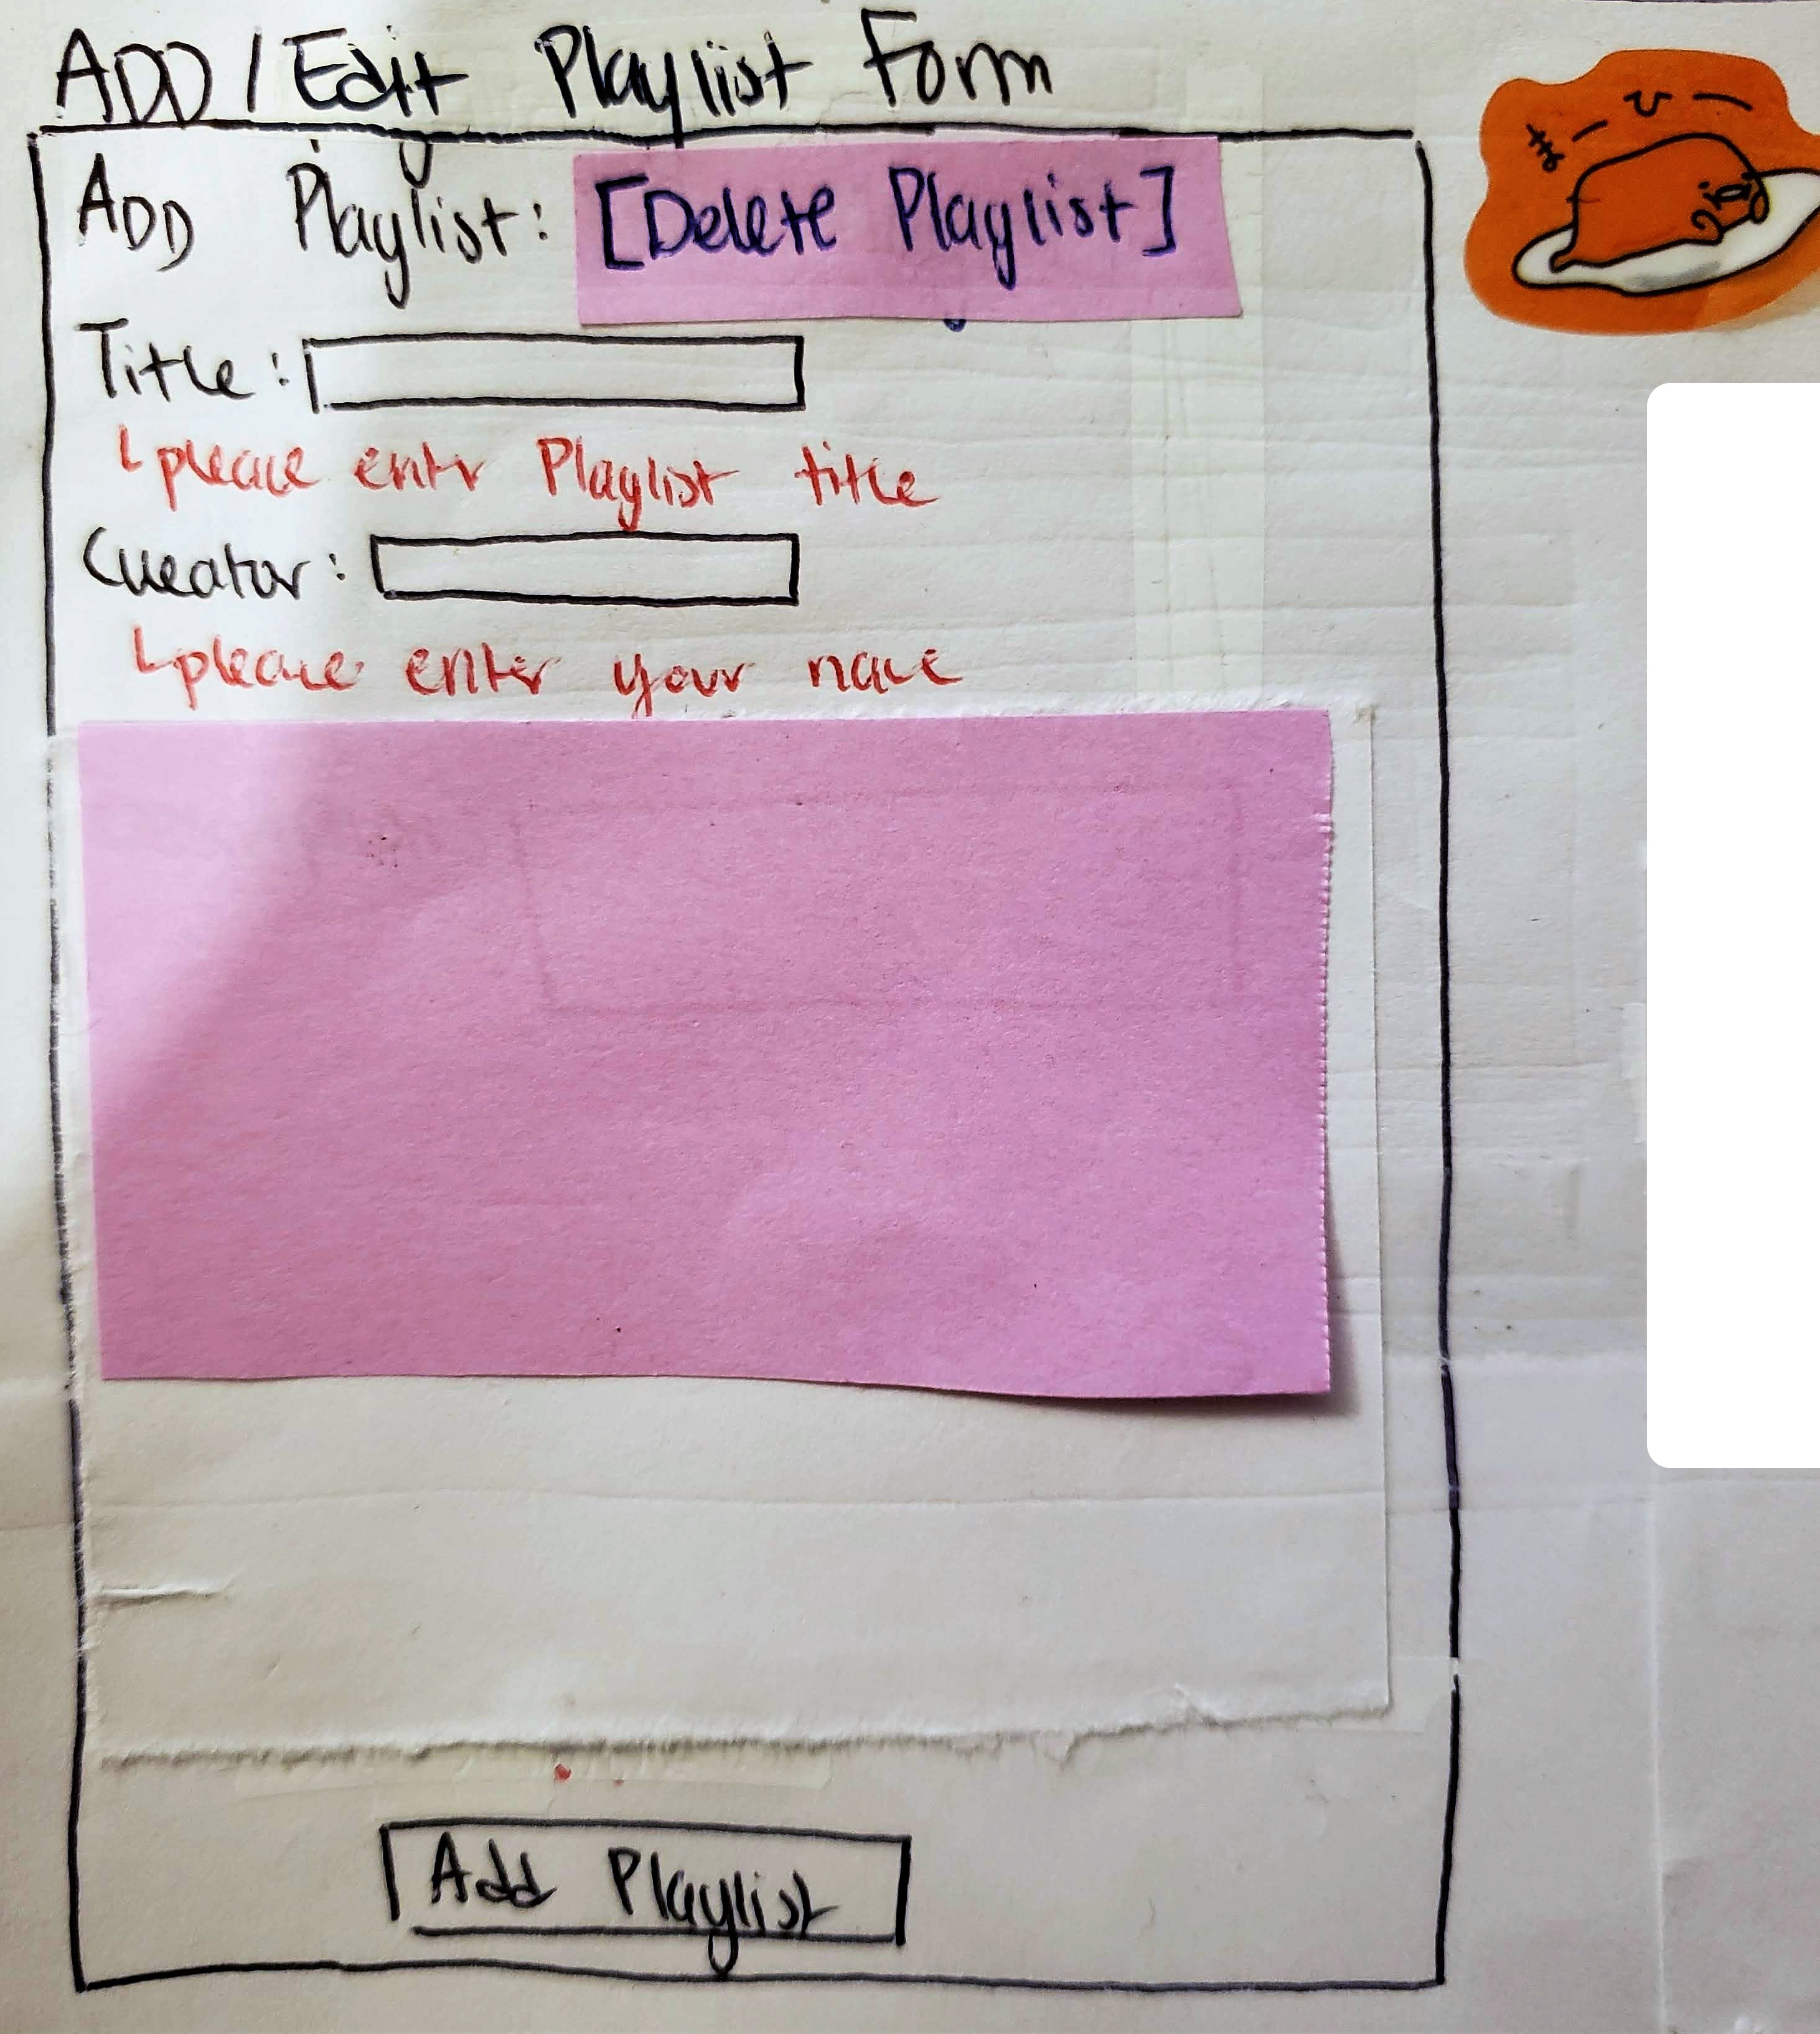 ADD / Edit Playlist Form
まーひー
ADD Playlist: [Delete Playlist]
Title:
please entr Playlist title
Creator:
please enter your name
Add Playlist